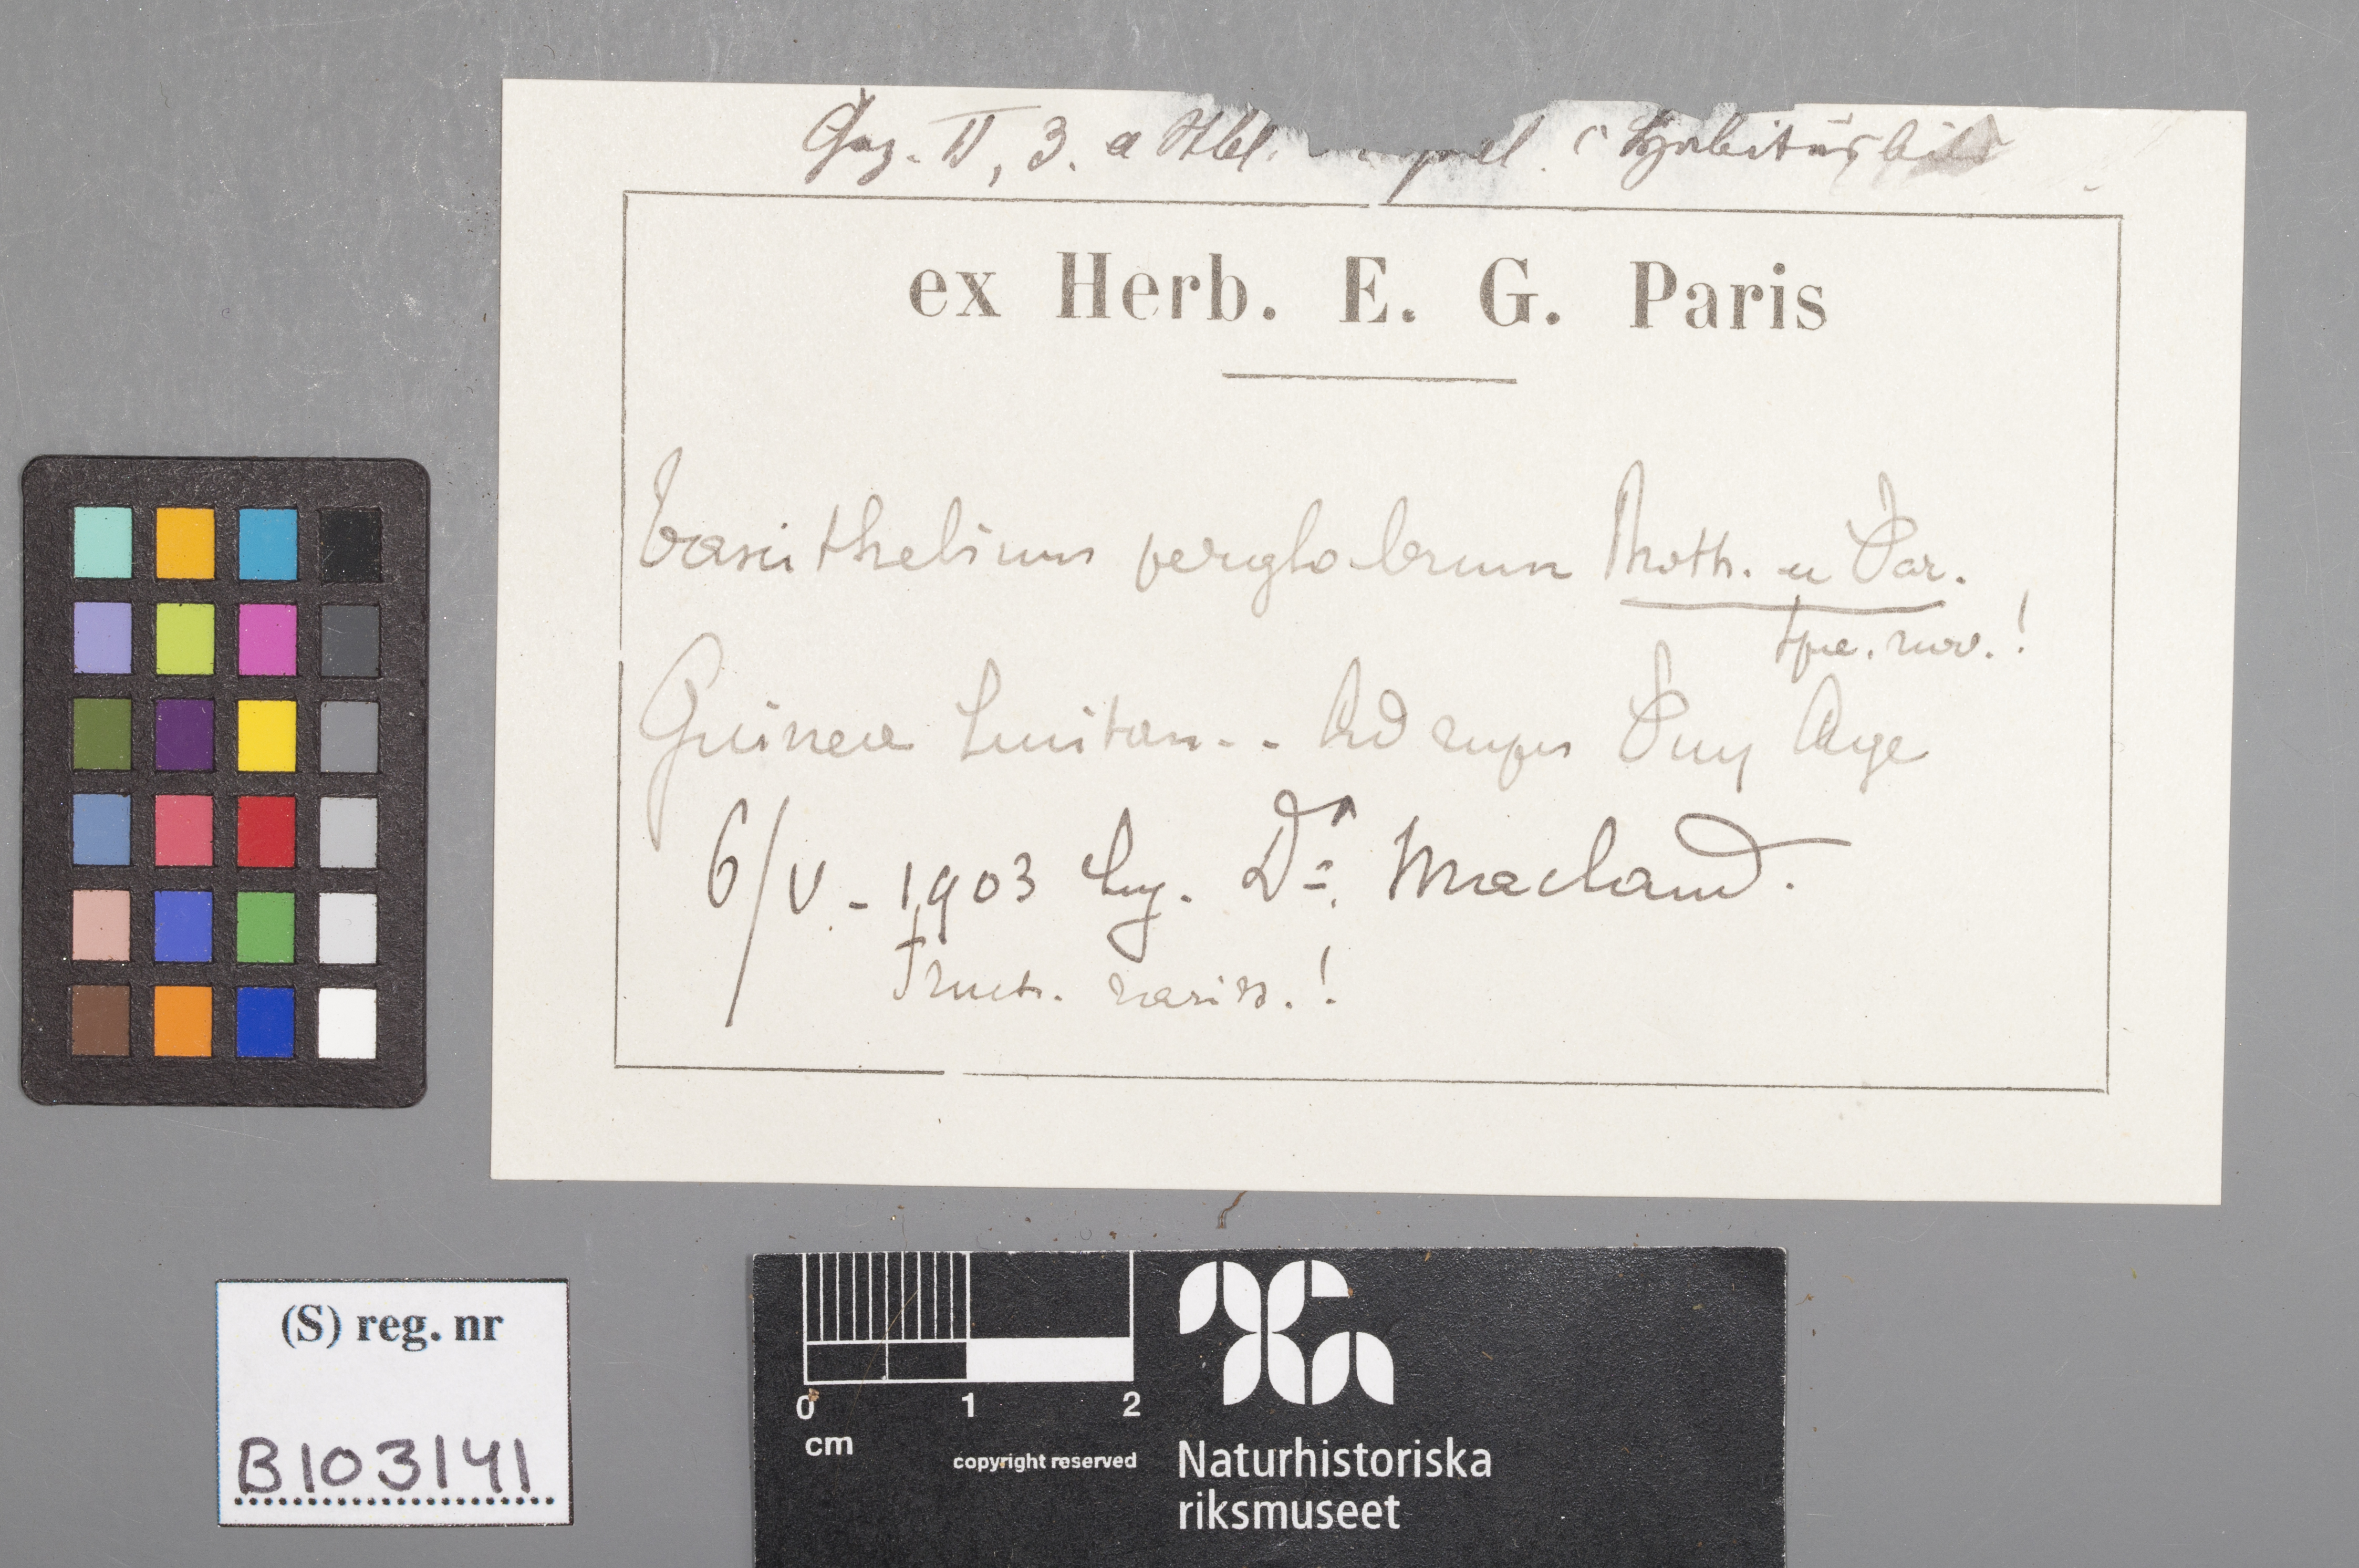 Gez. II, 3. a Abl.
Habitusbild
ex Herb. E. G. Paris
Taxithelium perglabrum Broth. u Par.
spe. nov.!
Guinea Lusitan.. Ad rupes
6/V. - 1903 leg. Dr. Maclaud.
Fruct. rariss.!
(S) reg. nr
B103141
0 1 2
cm
copyright reserved
Naturhistoriska
riksmuseet